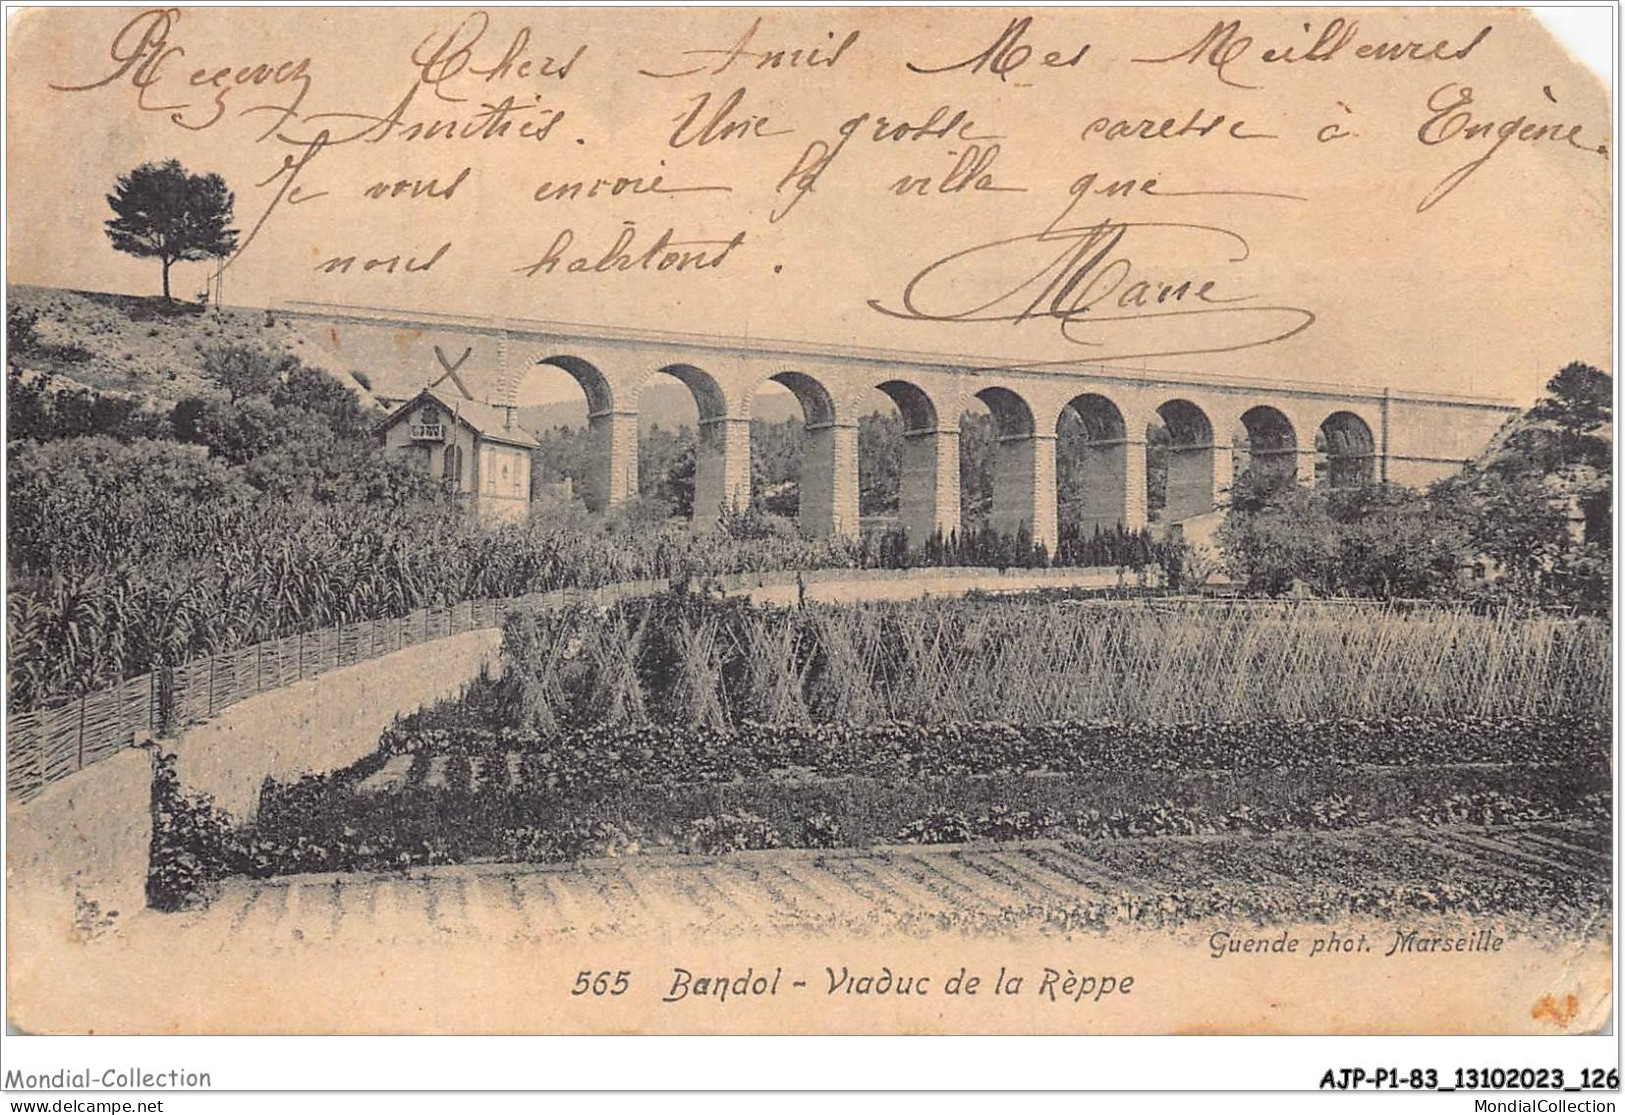 Reçevez Chers Amis Mes Meilleures
Amitiés. Une grosse caresse à Eugène.
Je vous envoie la ville que
nous habitons.
Marie
Guende phot. Marseille
565 Bandol - Viaduc de la Rèppe
Mondial-Collection
AJP-P1-83_13102023_126
www.delcampe.net
MondialCollection